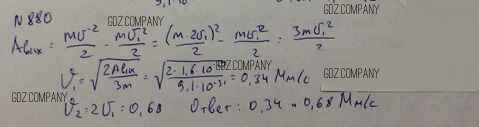 N 880
Aвых = mυ²/2 - mυ₁²/2 = (m·2υ₁)²/2 - mυ₁²/2 = 3mυ₁²/2
υ₁ = √(2Aвых/3m) = √(2·1,6·10 /9,1·10⁻³¹) = 0,34 Мм/с
υ₂ = 2υ₁ = 0,68 Ответ: 0,34 и 0,68 Мм/с
GDZ.COMPANY
GDZ.COMPANY
GDZ.COMPANY
GDZ.COMPANY
GDZ.COMPANY
GDZ.COMPANY